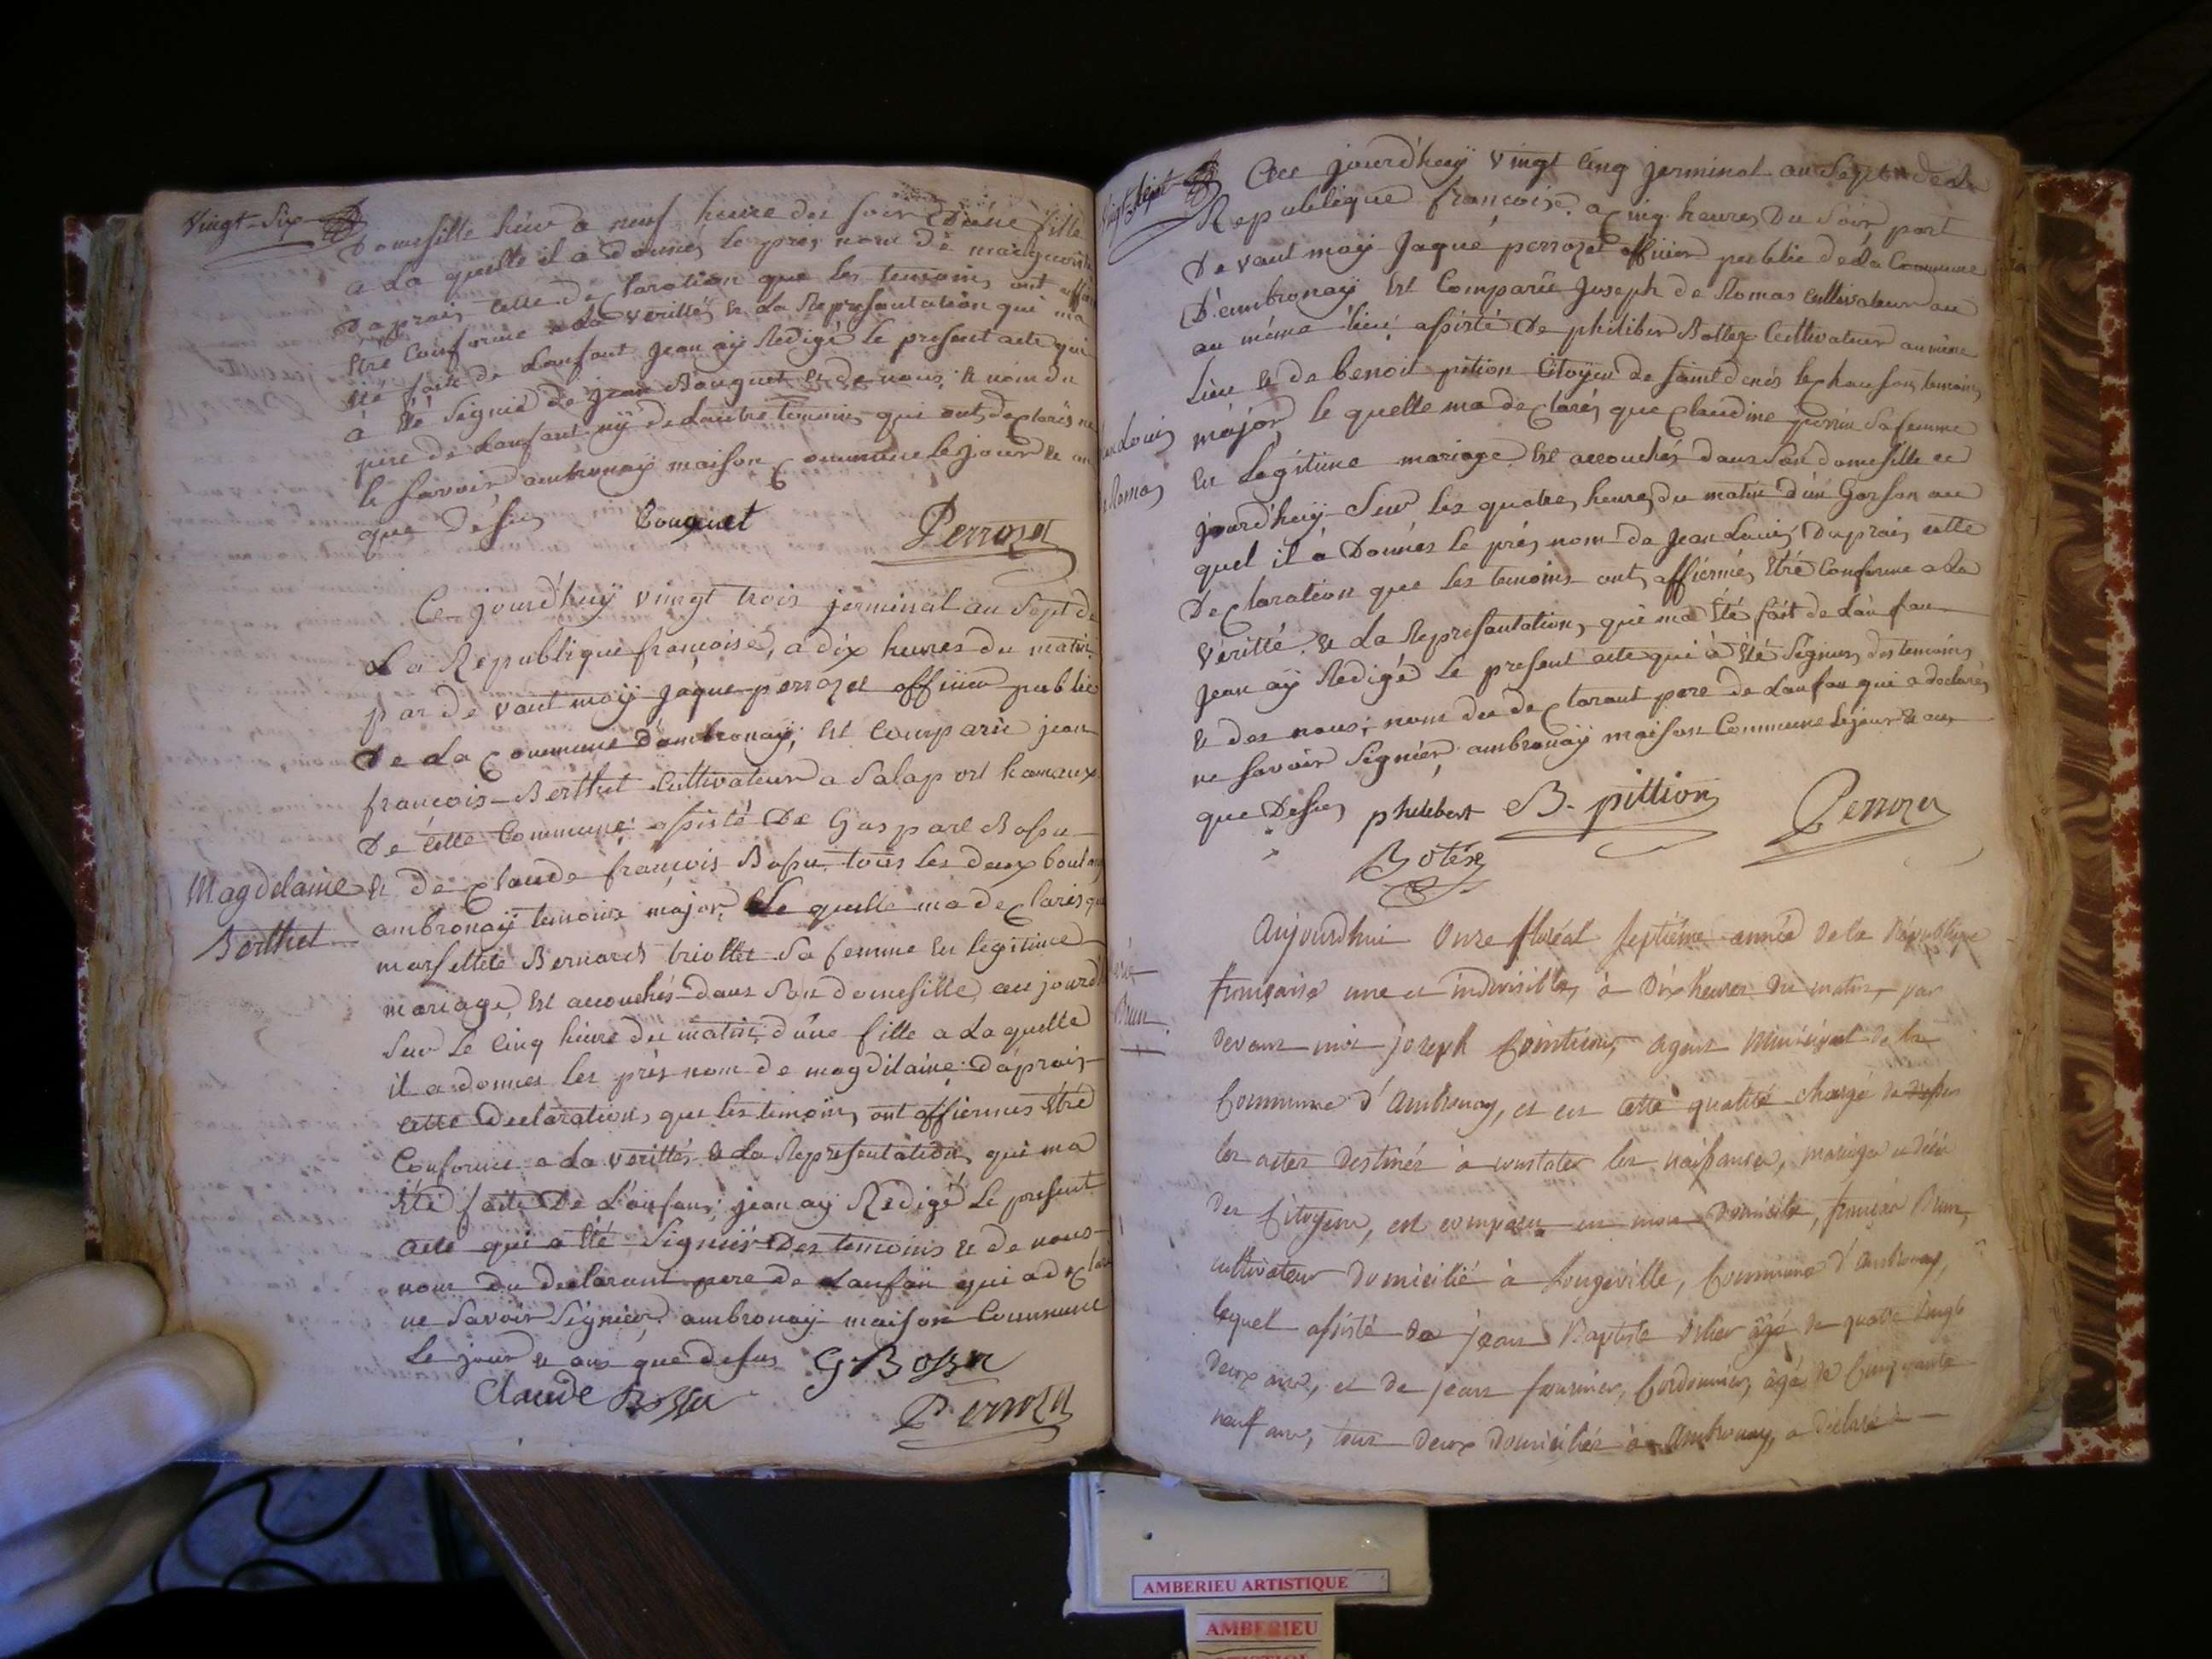 Vingt-Six
Domesille hier a neuf heure du soir d'une fille
a la quelle il a donné le prés nom de marguerite
d'aprais cette declaration que les temoins ont affir
Etre conforme a la verittés & la Representation qui ma
été faite de Lanfant Jean aÿ Redigé le present acte qui
à été Signié de jean Bouquet & de nous, & nom du
pere de Lanfant nÿ de Lautre temoins qui ont declarés ne
le savoir ambronaÿ maison Commune le jour & an
que desus
Bouquet
Perrozet
Ce jourd'huÿ vingt trois jerminal an Sept de
La Republique françoise, a dix heures du matin
par de vant moÿ jaque perrozet officier public
De La Commune d'ambronaÿ, est Comparü jean
francois Berthet Cultivateur a Salaport hameaux
De cette Commune; assisté De Gaspard Bossu
Magdelaine
Berthet
& de Claude françois Bossu tous les deux
ambronaÿ temoins major, Le quelle ma declarés que
Bernard triollet Sa femme En legitime
mariage, est accouchés dans Son domesille, au jourd
Sur Le Cinq heure du matin, d'une fille a La quelle
il a donnes les prés nom de magdelaine d'aprais
cette Declaration, que les temoins ont affiermés Etre
Conforme a La verittés & La Representation, qui ma
Eté faite De L'anfans, jean aÿ Redigé Le present
acte qui a Eté Signiér Des temoins & de nous
nom du declarant pere de Lanfan qui a declaré
ne Savoir Signiér, ambronaÿ maison Commune
Le jour & an que desus
G Bossu
Claude Bossu
Perrozet
Vingt Sept
Cee jourd'huÿ vingt Cinq jerminal an Sept de La
Republique françoise. a Cinq heures Du Soir, part
De vant moÿ Jaque perrozet officier public de La Commune
D'ambronaÿ est Comparü Joseph de Romas Cultivateur au
au même lieu; assisté De philiber Bottex Cultivateur au même
Lieu & de benoit pition Citoÿen de saint denis le chausson temoins
Louis
Romas
major, le quelle ma declarés que Claudine perrin Sa femme
En Legitime mariage est accouchés dans Son domesille ce
jourd'huÿ Sur les quatre heures du matin d'un Garson au
quel il à Donnés Le prés nom de Jean Louis Daprais cette
Declaration que les temoins ont affiermés Etré Conforme a La
Veritté. & La Representation, qui ma Eté fait de Lanfan
Jean aÿ Redigé Le present acte qui à Eté Signier des temoins
& des nous; nom du declarant pere de Lanfan qui a declarés
ne Savoir Signiér, ambronaÿ maison Commune Le jour & an
que Desus
philibert
B. pittion
Perrozet
Botex
Aujourdhui Onze floréal Septième année de la République
Brun
française une et indivisible, à dix heures du matin, par
devant moi joseph Cointicour, agent Municipal de la
Commune d'Ambronay, et en cette qualité chargé de
les actes destinés à constater les naissances, mariage et décès
des Citoyens, est comparu en mon domicile, françois Brun,
cultivateur domicilié à Longeville, Commune d'ambronay,
lequel assisté de jean Baptiste âgé de quatre vingt
deux ans, et de jean fournier, Cordonnier, âgé de Cinquante
neuf ans, tous deux domiciliés à Ambronay, a déclaré à
AMBERIEU ARTISTIQUE
AMBERIEU
ARTISTIQUE